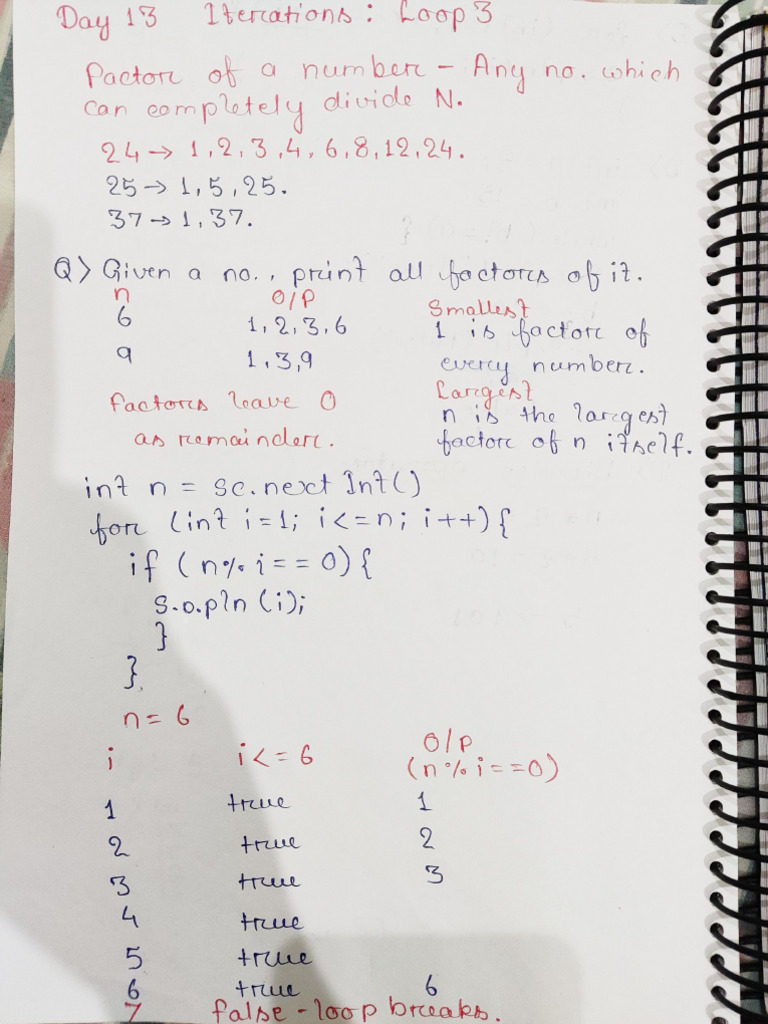 Day 13 Iterations: Loop 3
Factor of a number - Any no. which
can completely divide N.
24 → 1, 2, 3, 4, 6, 8, 12, 24.
25 → 1, 5, 25.
37 → 1, 37.
Q> Given a no., print all factors of it.
n O/P Smallest
6 1, 2, 3, 6 1 is factor of
9 1, 3, 9 every number.
Factors leave 0 Largest
as remainder. n is the largest
factor of n itself.
int n = sc.nextInt()
for (int i=1; i<=n; i++) {
if (n% i == 0) {
S.o.pln (i);
}
}
n = 6
i i <= 6 O/P
(n % i == 0)
1 true 1
2 true 2
3 true 3
4 true
5 true
6 true 6
7 false - loop breaks.